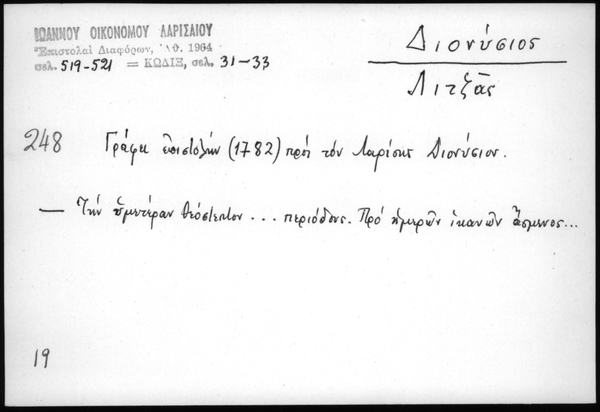 ΙΩΑΝΝΟΥ ΟΙΚΟΝΟΜΟΥ ΛΑΡΙΣΑΙΟΥ
Ἐπιστολαὶ Διαφόρων, Ἀθ. 1964
σελ. 519-521 = ΚΩΔΙΞ, σελ. 31-33
Διονύσιος
Λιτζᾶς
248 Γράφει ἐπιστολὴν (1782) πρὸς τὸν Λαρίσης Διονύσιον.
— Τὴν ὑμετέραν θεόσλεπτον ... περιόδους. Πρὸ ἡμερῶν ἱκανῶν ἄσμενος...
19